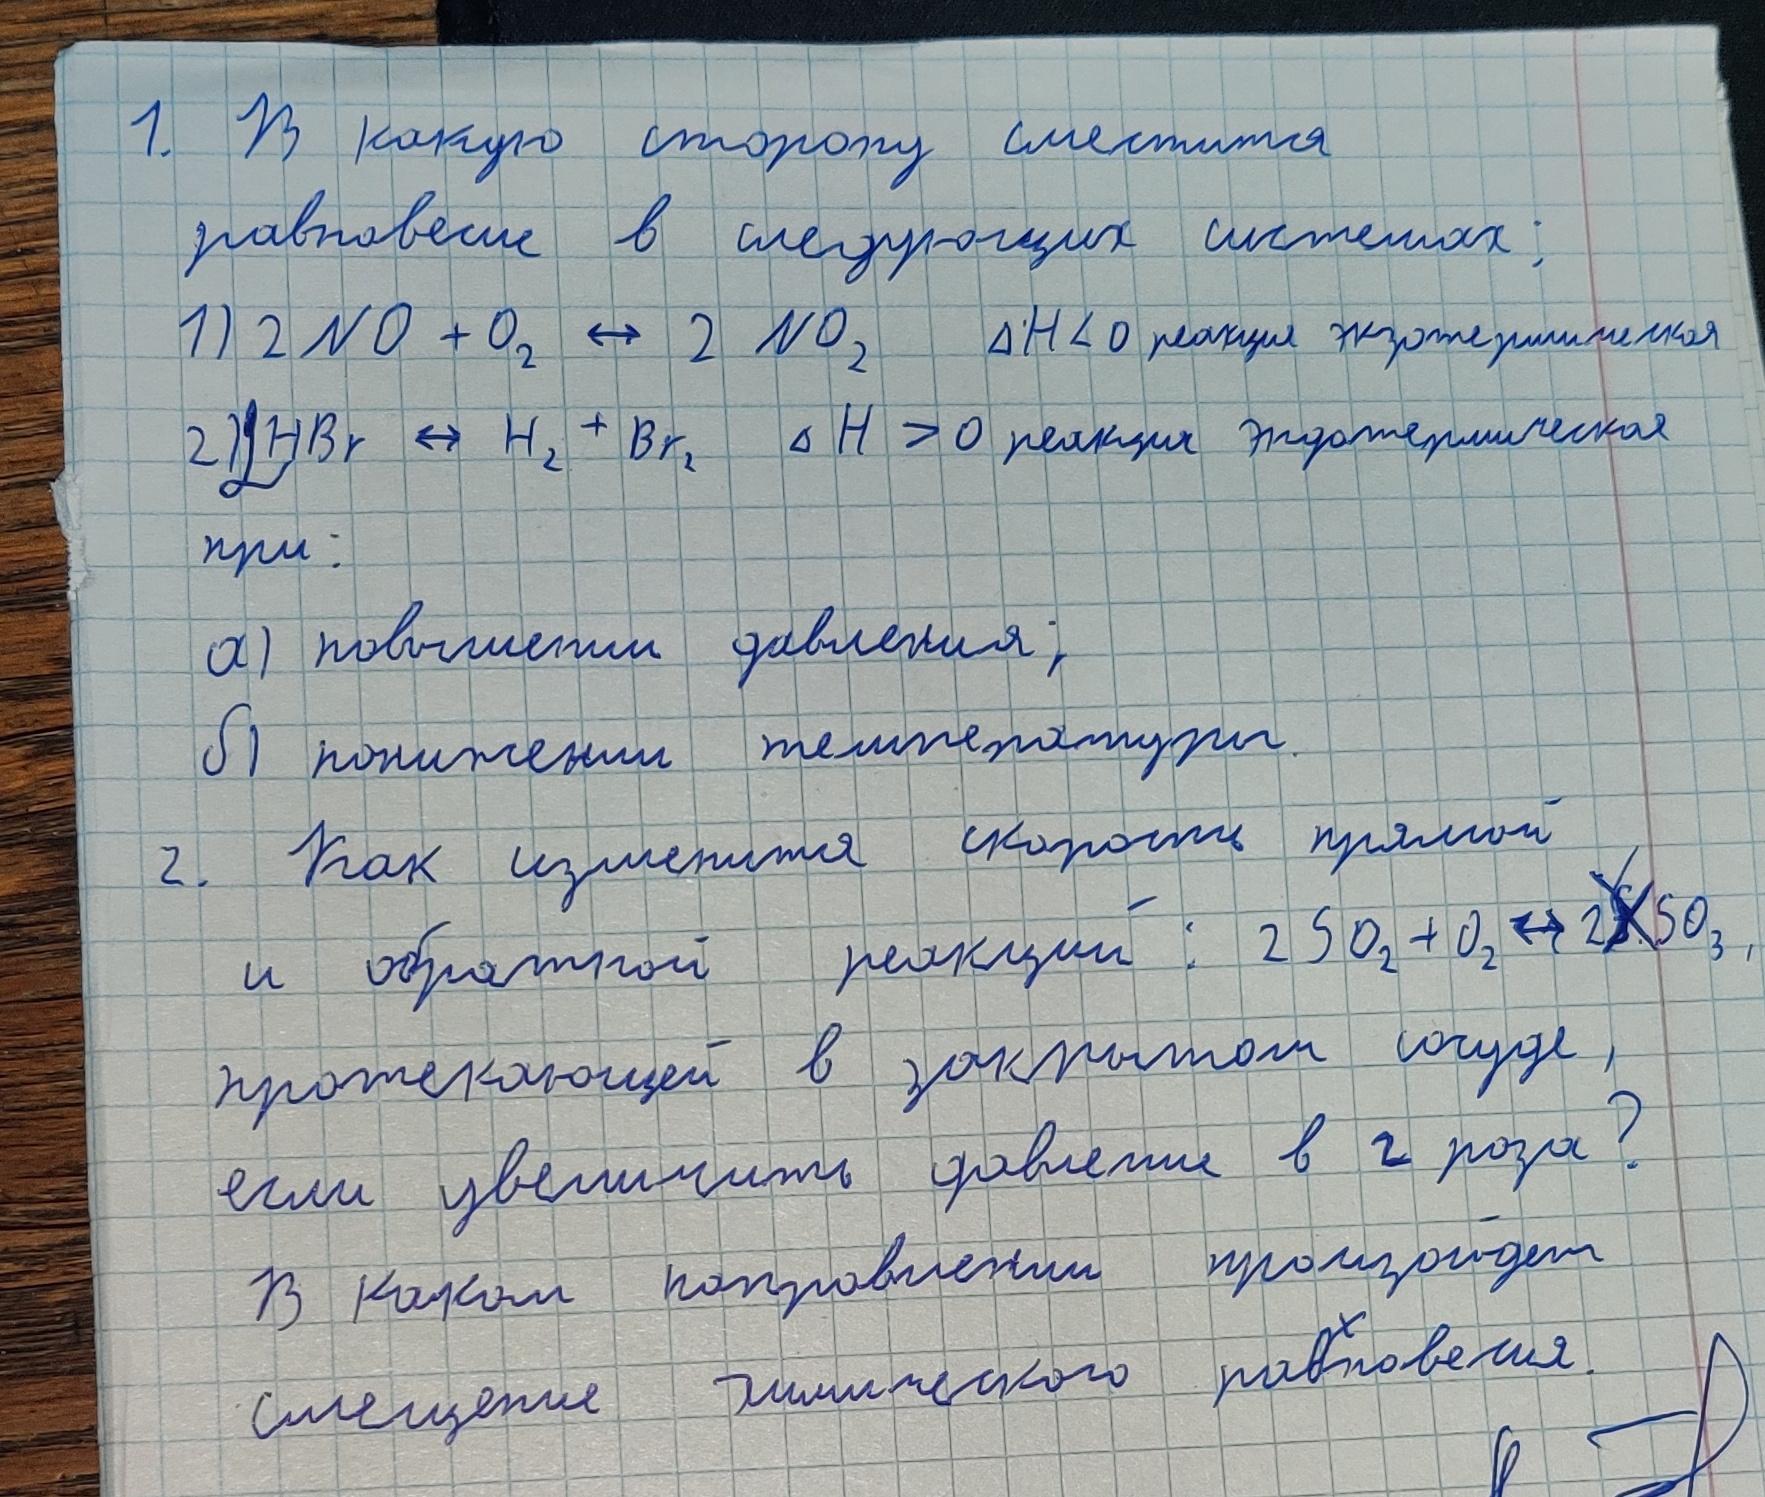 1. В какую сторону сместится
равновесие в следующих системах:
1) 2 NO + O₂ ↔ 2 NO₂ ΔH<0 реакция экзотермическая
2) 2HBr ↔ H₂ + Br₂ ΔH >0 реакция эндотермическая
при:
а) повышении давления;
б) понижении температуры.
2. Как изменится скорость прямой
и обратной реакций: 2 SO₂ + O₂ ↔ 2 SO₃,
протекающей в закрытом сосуде,
если увеличить давление в 2 раза?
В каком направлении произойдет
смещение химического равновесия.